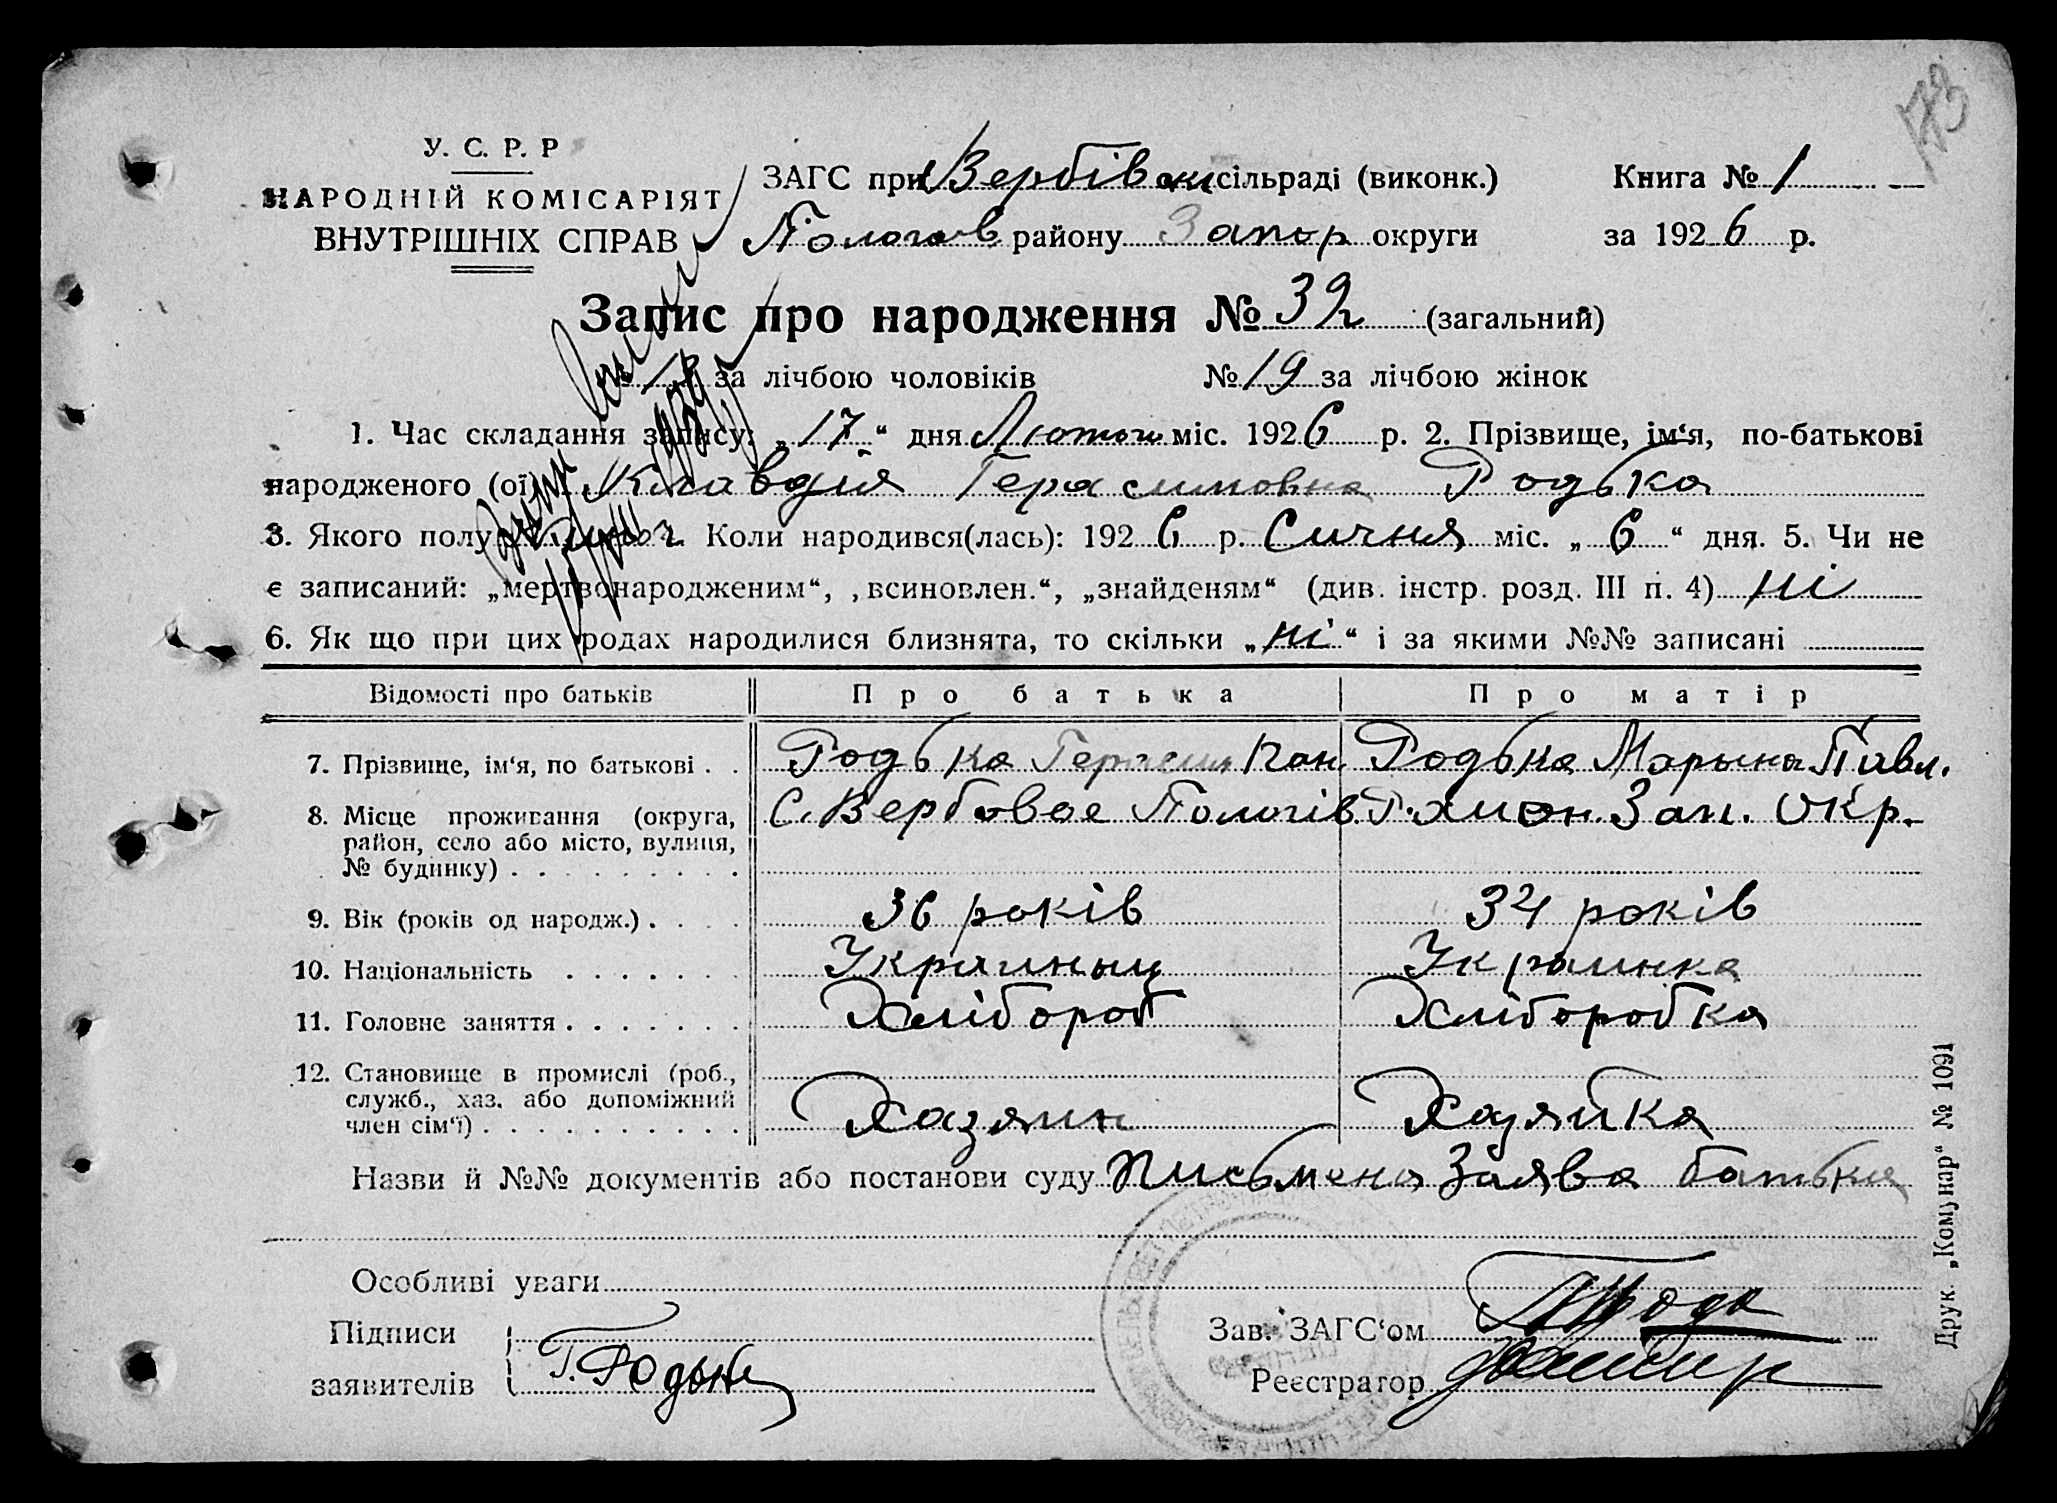 173
У. С. Р. Р
НАРОДНІЙ КОМІСАРІЯТ
ВНУТРІШНІХ СПРАВ
ЗАГС при Вербівск сільраді (виконк.) Книга № 1
Пологов району Запор округи за 1926 р.
Запис про народження № 32 (загальний)
за лічбою чоловіків № 19 за лічбою жінок
1. Час складання запису: „17“ дня Лютого міс. 1926 р. 2. Прізвище, ім‘я, по-батькові
народженого (ої) Клавдія Герасимовна Родька
3. Якого полу Коли народився(лась): 1926 р. Сичня міс. „6“ дня. 5. Чи не
є записаний: „мертвонародженим“, „всиновлен.“, „знайденям“ (див. інстр. розд. III п. 4) ні
6. Як що при цих родах народилися близнята, то скільки „ні“ і за якими №№ записані
Відомості про батьків Про батька Про матір
7. Прізвище, ім‘я, по батькові . . Родька Герасим Родька Марына Павл.
8. Місце проживання (округа, С. Вербовое Пологів Зап. Окр.
район, село або місто, вулиця,
№ будинку) . . . . . . . . .
9. Вік (років од народж.) . . . . 36 років 34 років
10. Національність . . . . . . . Украиныц Украинка
11. Головне заняття . . . . . . . Хлібороб Хлиборобка
12. Становище в промислі (роб.,
служб., хаз. або допоміжний
член сім‘ї) . . . . . . . . . . Хазяин Хазяйка
Назви й №№ документів або постанови суду Письмена Заява батька
Особливі уваги
Підписи Зав. ЗАГС‘ом
заявителів Г. Родька Реєстратор
Друк. „Комунар“ № 1091